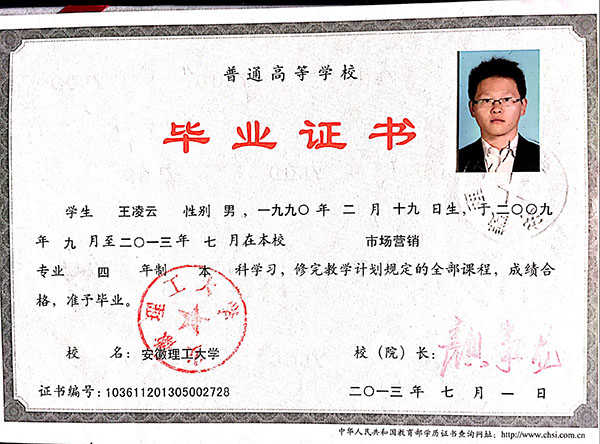 普通高等学校
毕业证书
学生 王凌云 性别 男，一九九〇年 二 月 十九 日生，于二〇〇九
年 九 月至二〇一三年 七 月在本校 市场营销
专业 四 年制 本 科学习，修完教学计划规定的全部课程，成绩合
格，准予毕业。
校 名：安徽理工大学 校（院）长：
证书编号：103611201305002728 二〇一三年 七 月 一 日
中华人民共和国教育部学历证书查询网址：http://www.chsi.com.cn